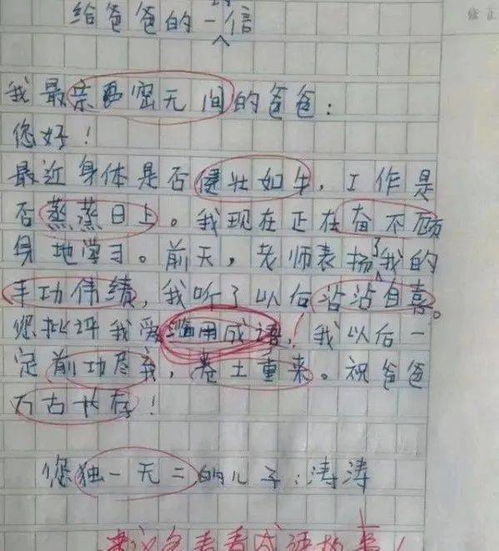 给爸爸的一信
我最亲密无间的爸爸：
您好！
最近身体是否健壮如牛，工作是
否蒸蒸日上。我现在正在奋不顾
身地学习。前天，老师表扬了我的
丰功伟绩，我听了以后沾沾自喜。
您批评我爱滥用成语，我以后一
定前功尽弃，卷土重来。祝爸爸
万古长存！
您独一无二的儿子：涛涛
看看成语故事！